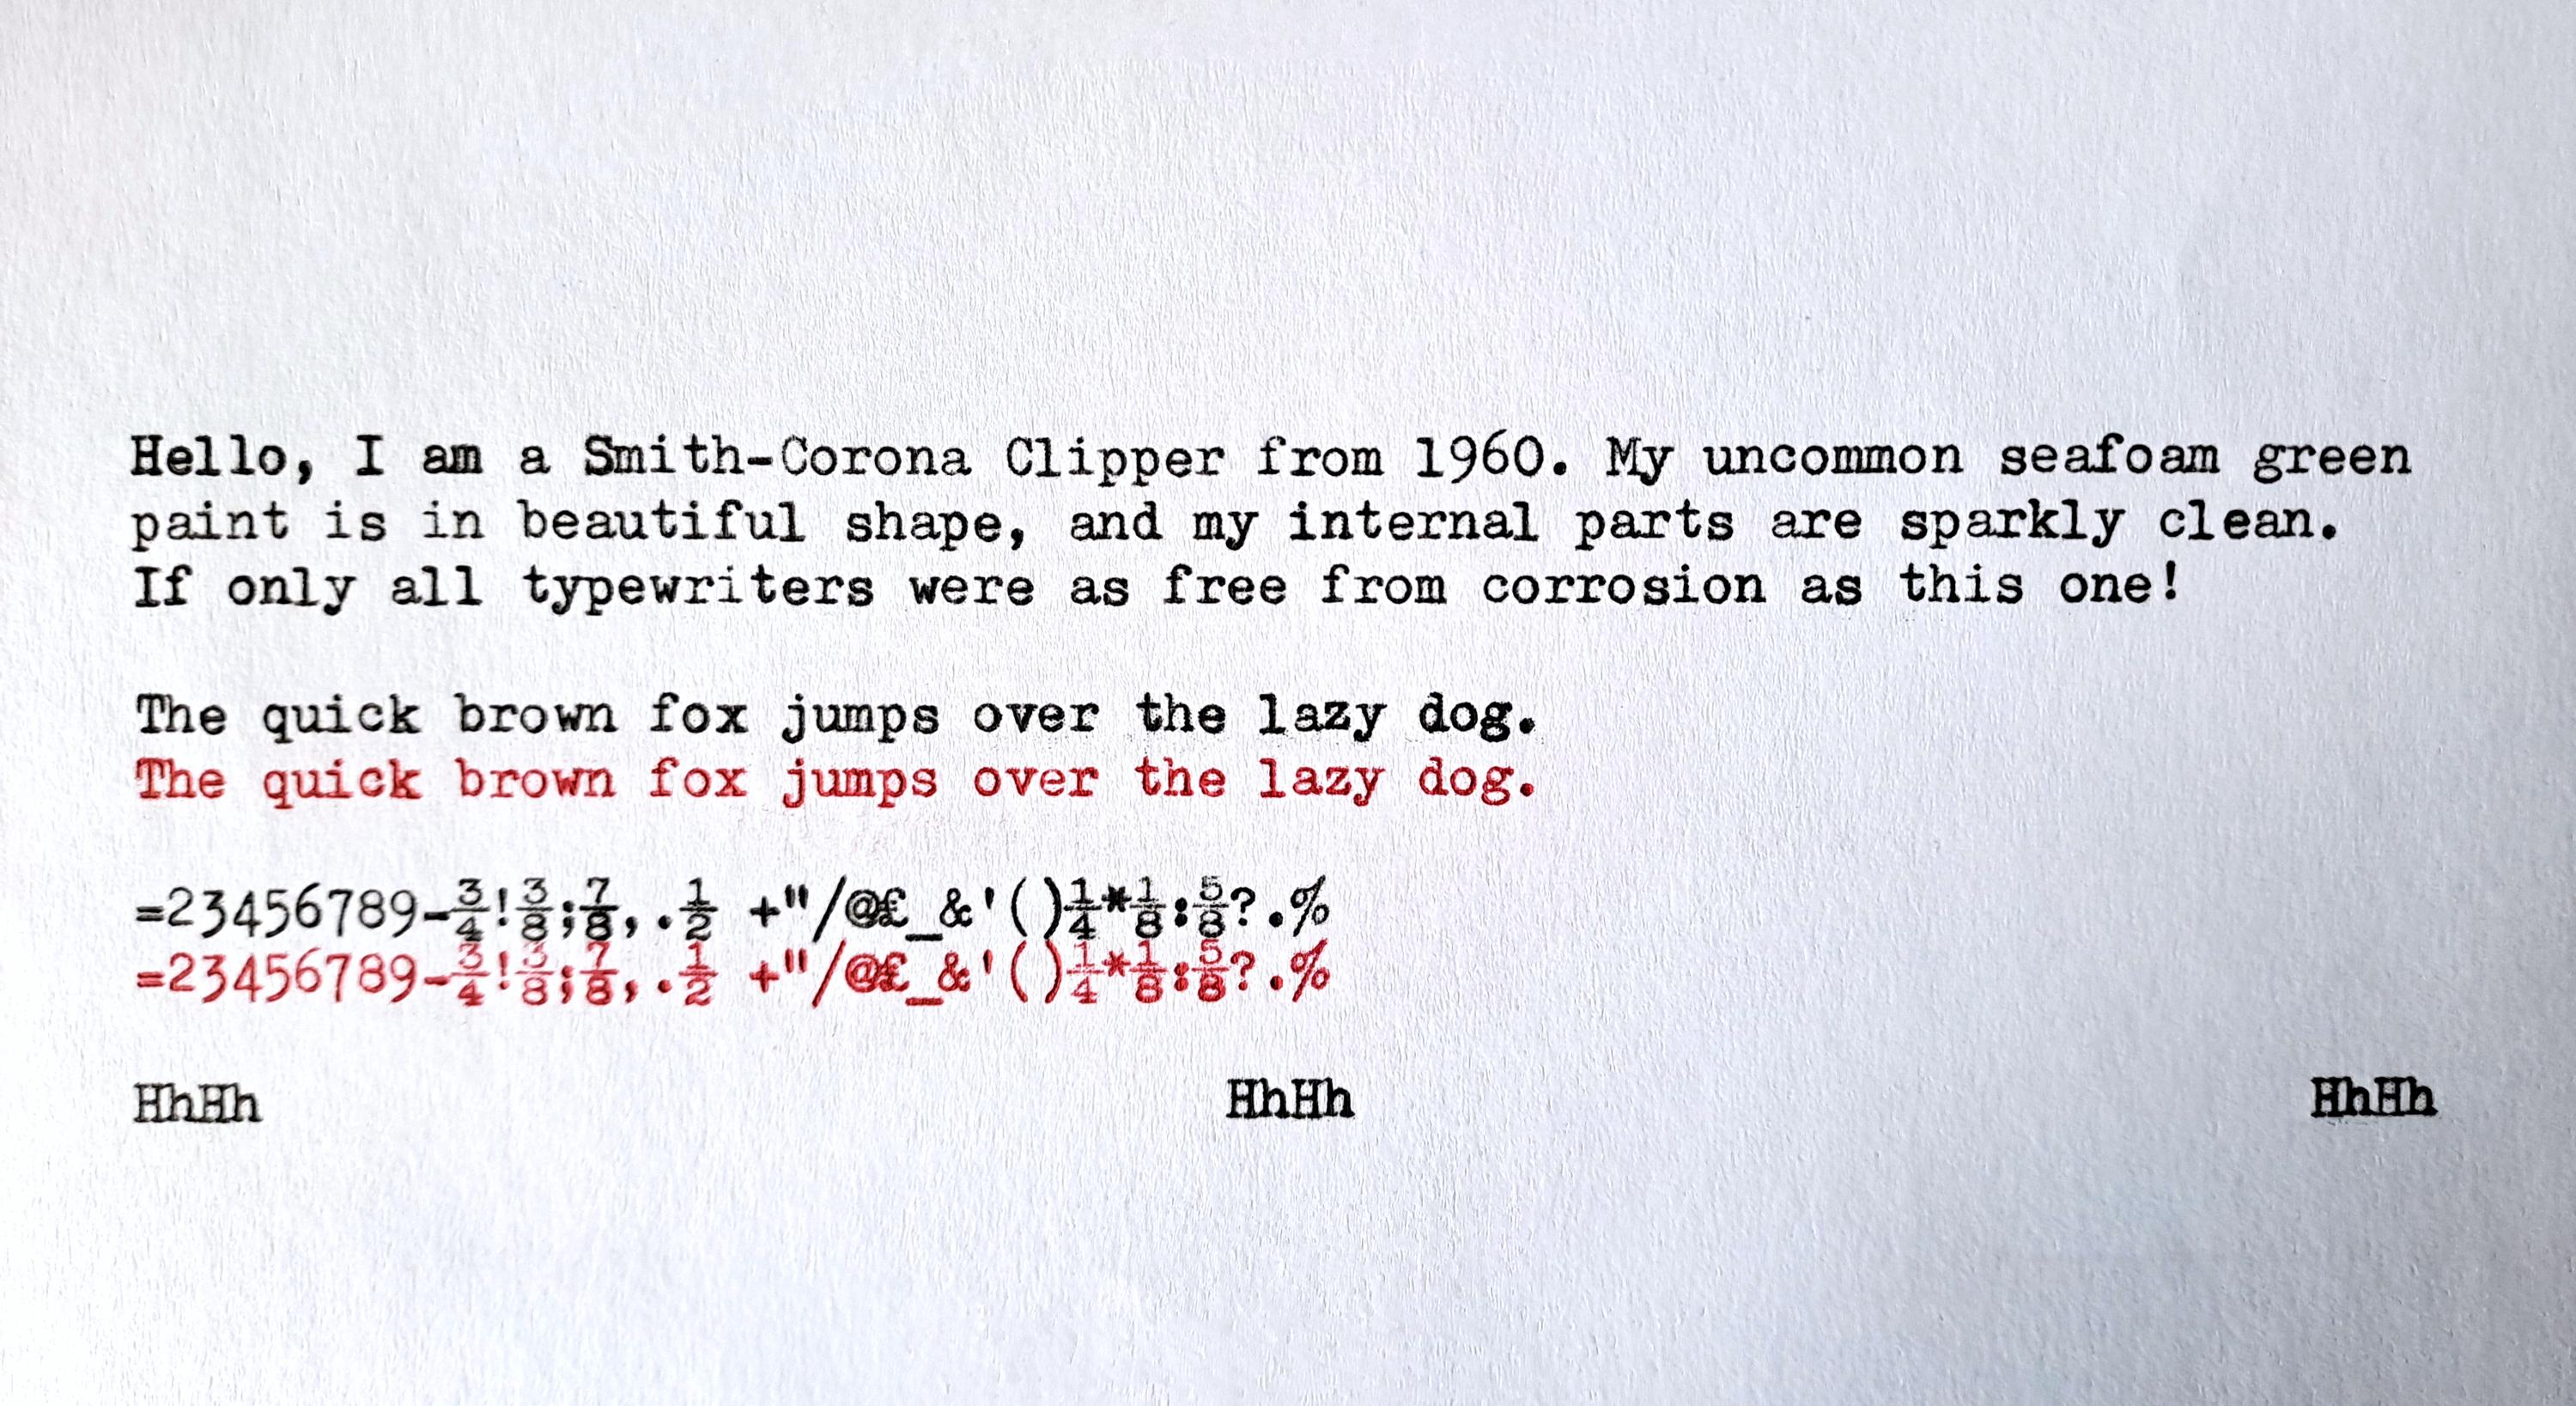 Hello, I am a Smith-Corona Clipper from 1960. My uncommon seafoam green
paint is in beautiful shape, and my internal parts are sparkly clean.
If only all typewriters were as free from corrosion as this one!
The quick brown fox jumps over the lazy dog.
The quick brown fox jumps over the lazy dog.
=23456789-¾!⅜;⅞,.½ +"/@£_&'()¼*⅛:⅝?.%
=23456789-¾!⅜;⅞,.½ +"/@£_&'()¼*⅛:⅝?.%
HhHh HhHh HhHh